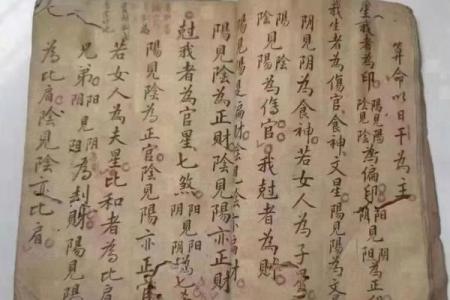 算命以日干為主
星我者為印陽見陽陰見陰為偏印陽見阴為正
我生者為傷官食神文星陽見陽為文
阴見阴為食神若女人為子星
陽見陰陰見陽為傷官我尅者為財
陽見陽是偏財陰見陰亦偏財
陽見陰為正財陰見陽亦正財
尅我者為官星七煞阳見阳阴見阴為七
陽見陰為正官陰見陽亦正官
若女人為夫星比和者為比肩
兄弟阳見阴為刦財陽見陽
為比肩陰見陰亦比肩